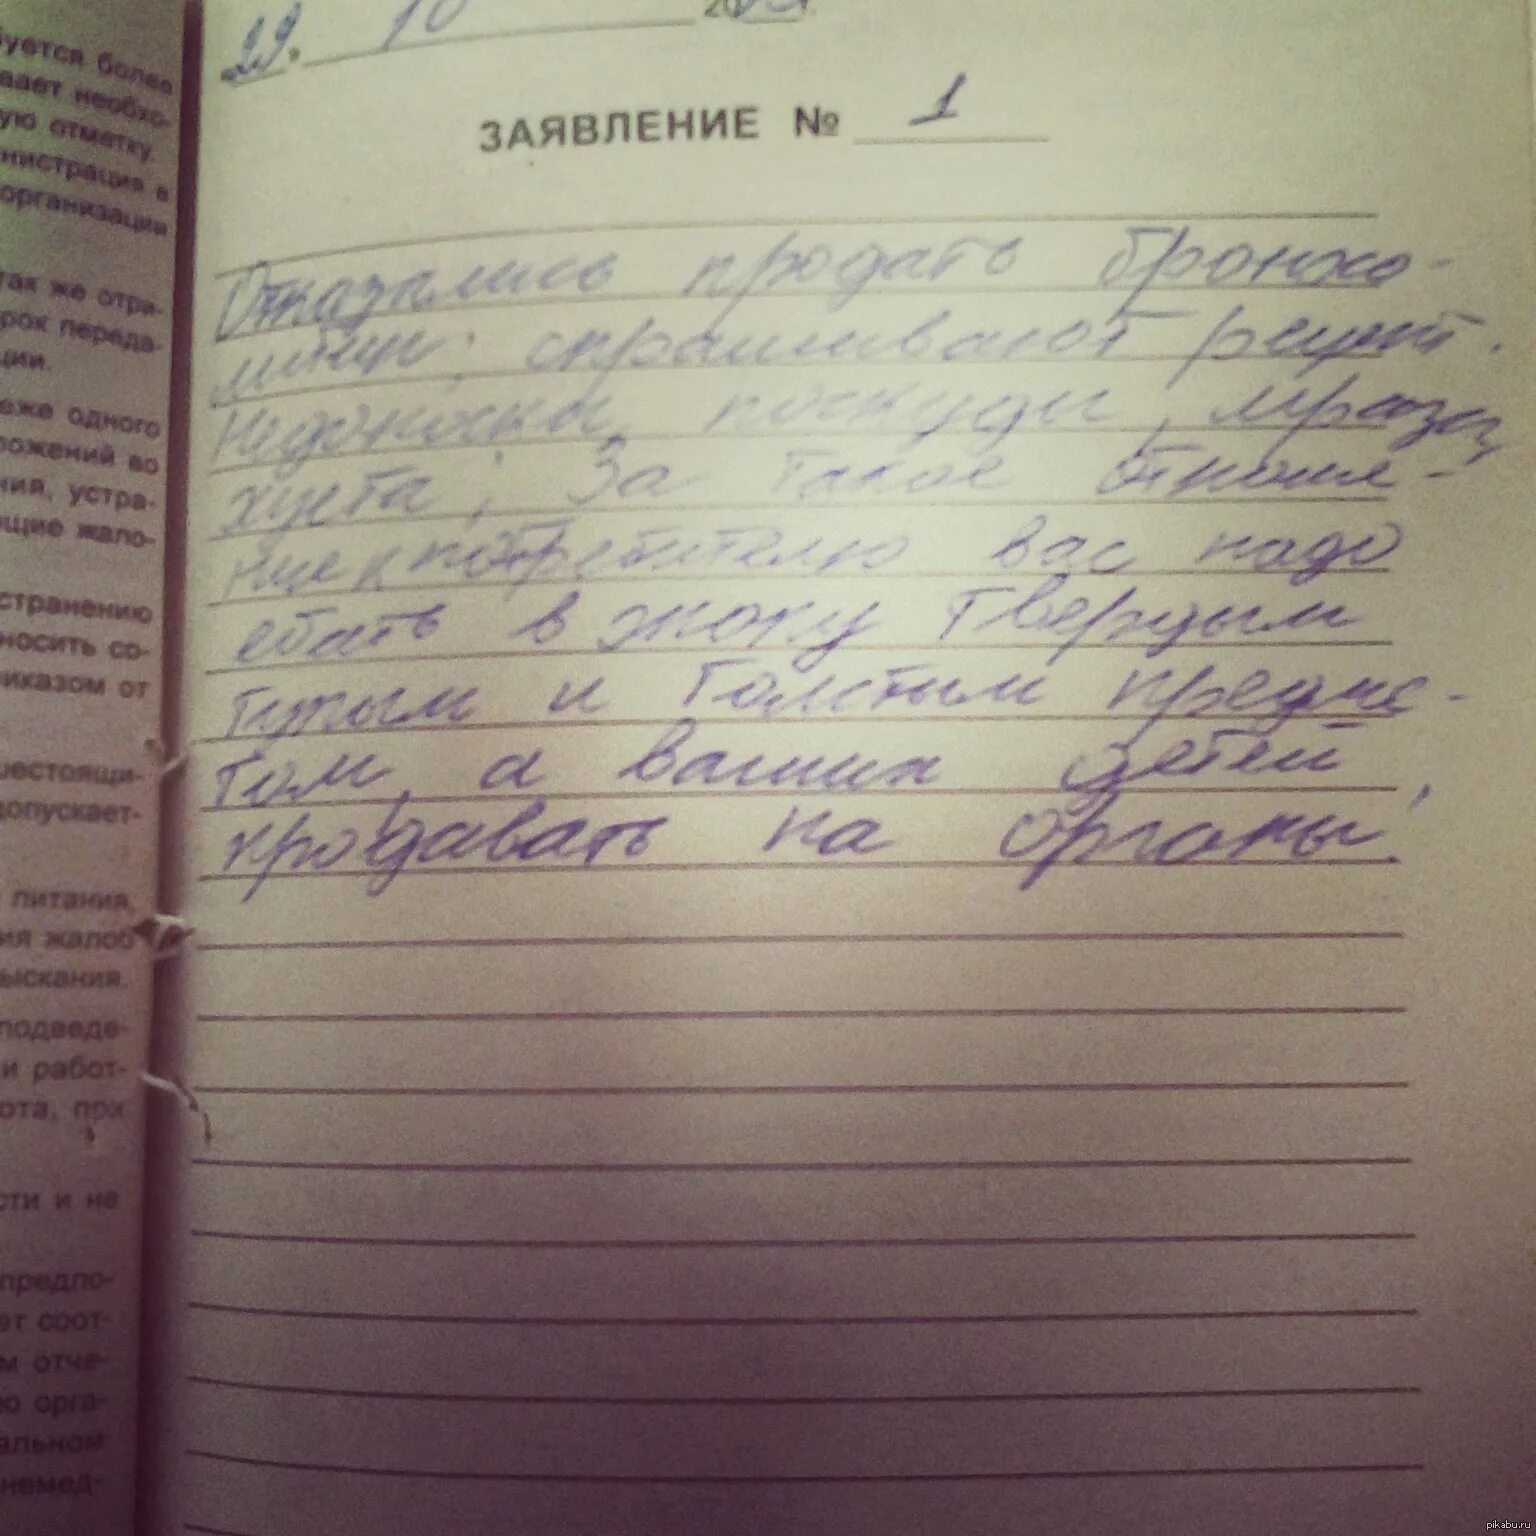 буется более
вает необхо-
ую отметку.
нистрация в
организации
так же отри-
рок переда-
ции.
еже одного
ложений во
ния, устра-
ющие жало-
странению
носить со-
риказом от
шестоящи-
допускает-
питания,
ия жалоб
зыскания.
подведе-
и работ-
ота, при
сти и не
предло-
ет соот-
м отче-
ю орга-
альном
немед-
29. 10 20
ЗАЯВЛЕНИЕ № 1
Отказались продать бронхо-
литин; спрашивают рецепт.
Недоноски, паскуды, мрази,
хуета; За такое отноше-
ние к потребителю вас надо
ебать в жопу твердым
тупым и толстым предме-
том, а ваших детей,
продавать на органы.
pikabu.ru